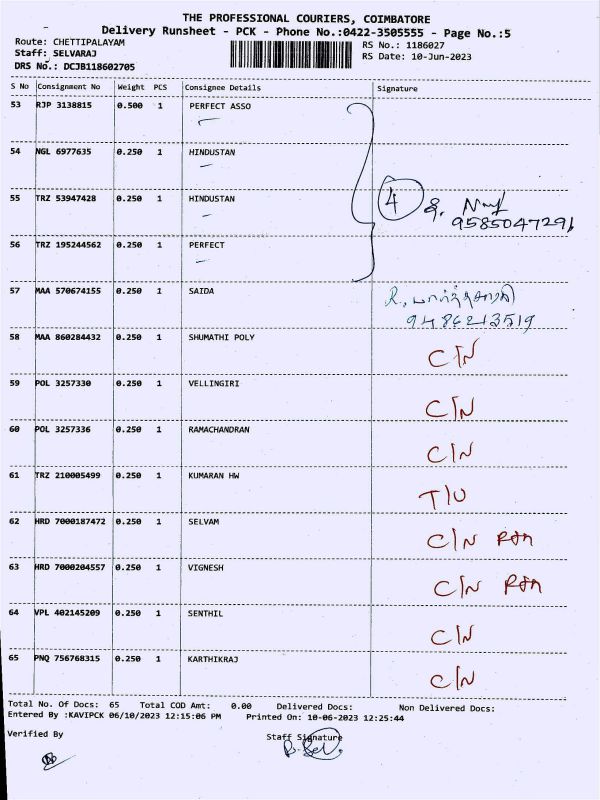 THE PROFESSIONAL COURIERS, COIMBATORE
Delivery Runsheet - PCK - Phone No.:0422-3505555 - Page No.:5
Route: CHETTIPALAYAM
RS No.: 1186027
Staff: SELVARAJ
RS Date: 10-Jun-2023
DRS No.: DCJB118602705
S No Consignment No Weight PCS Consignee Details Signature
53 RJP 3138815 0.500 1 PERFECT ASSO
54 NGL 6977635 0.250 1 HINDUSTAN
55 TRZ 53947428 0.250 1 HINDUSTAN
4
9585047291
56 TRZ 195244562 0.250 1 PERFECT
57 MAA 570674155 0.250 1 SAIDA
R. பார்த்தசாரதி
9486213519
58 MAA 860284432 0.250 1 SHUMATHI POLY C/N
59 POL 3257330 0.250 1 VELLINGIRI C/N
60 POL 3257336 0.250 1 RAMACHANDRAN C/N
61 TRZ 210005499 0.250 1 KUMARAN HW T/U
62 HRD 7000187472 0.250 1 SELVAM C/N
63 HRD 7000204557 0.250 1 VIGNESH C/N
64 VPL 402145209 0.250 1 SENTHIL C/N
65 PNQ 756768315 0.250 1 KARTHIKRAJ C/N
Total No. Of Docs: 65 Total COD Amt: 0.00 Delivered Docs: Non Delivered Docs:
Entered By :KAVIPCK 06/10/2023 12:15:06 PM Printed On: 10-06-2023 12:25:44
Verified By Staff Signature